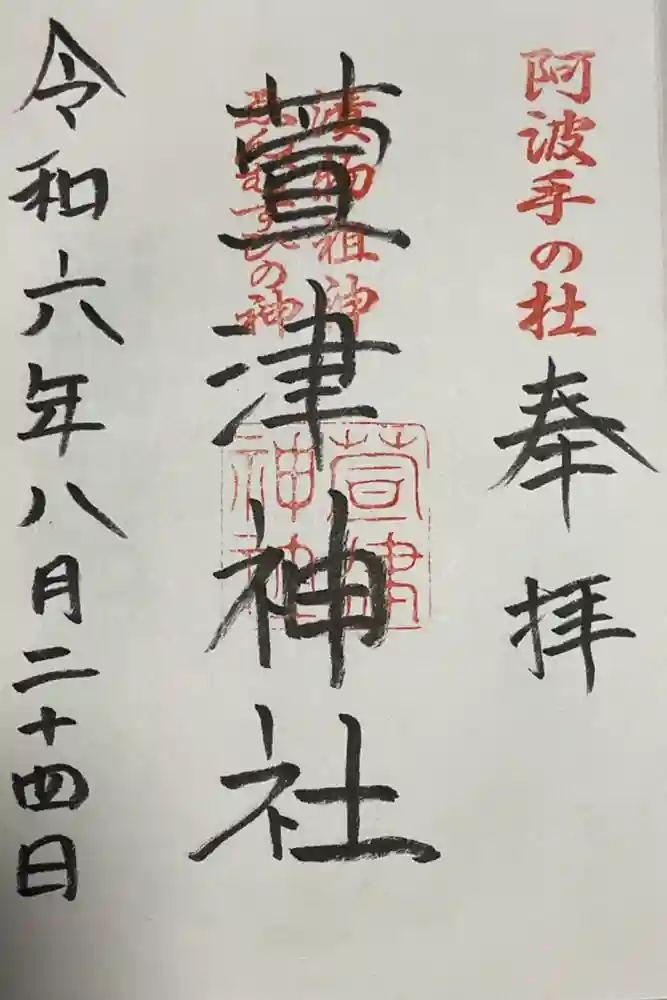 阿波手の杜
奉拝
漬物祖神
縁むすびの神
萱津神社
萱津神社
令和六年八月二十四日